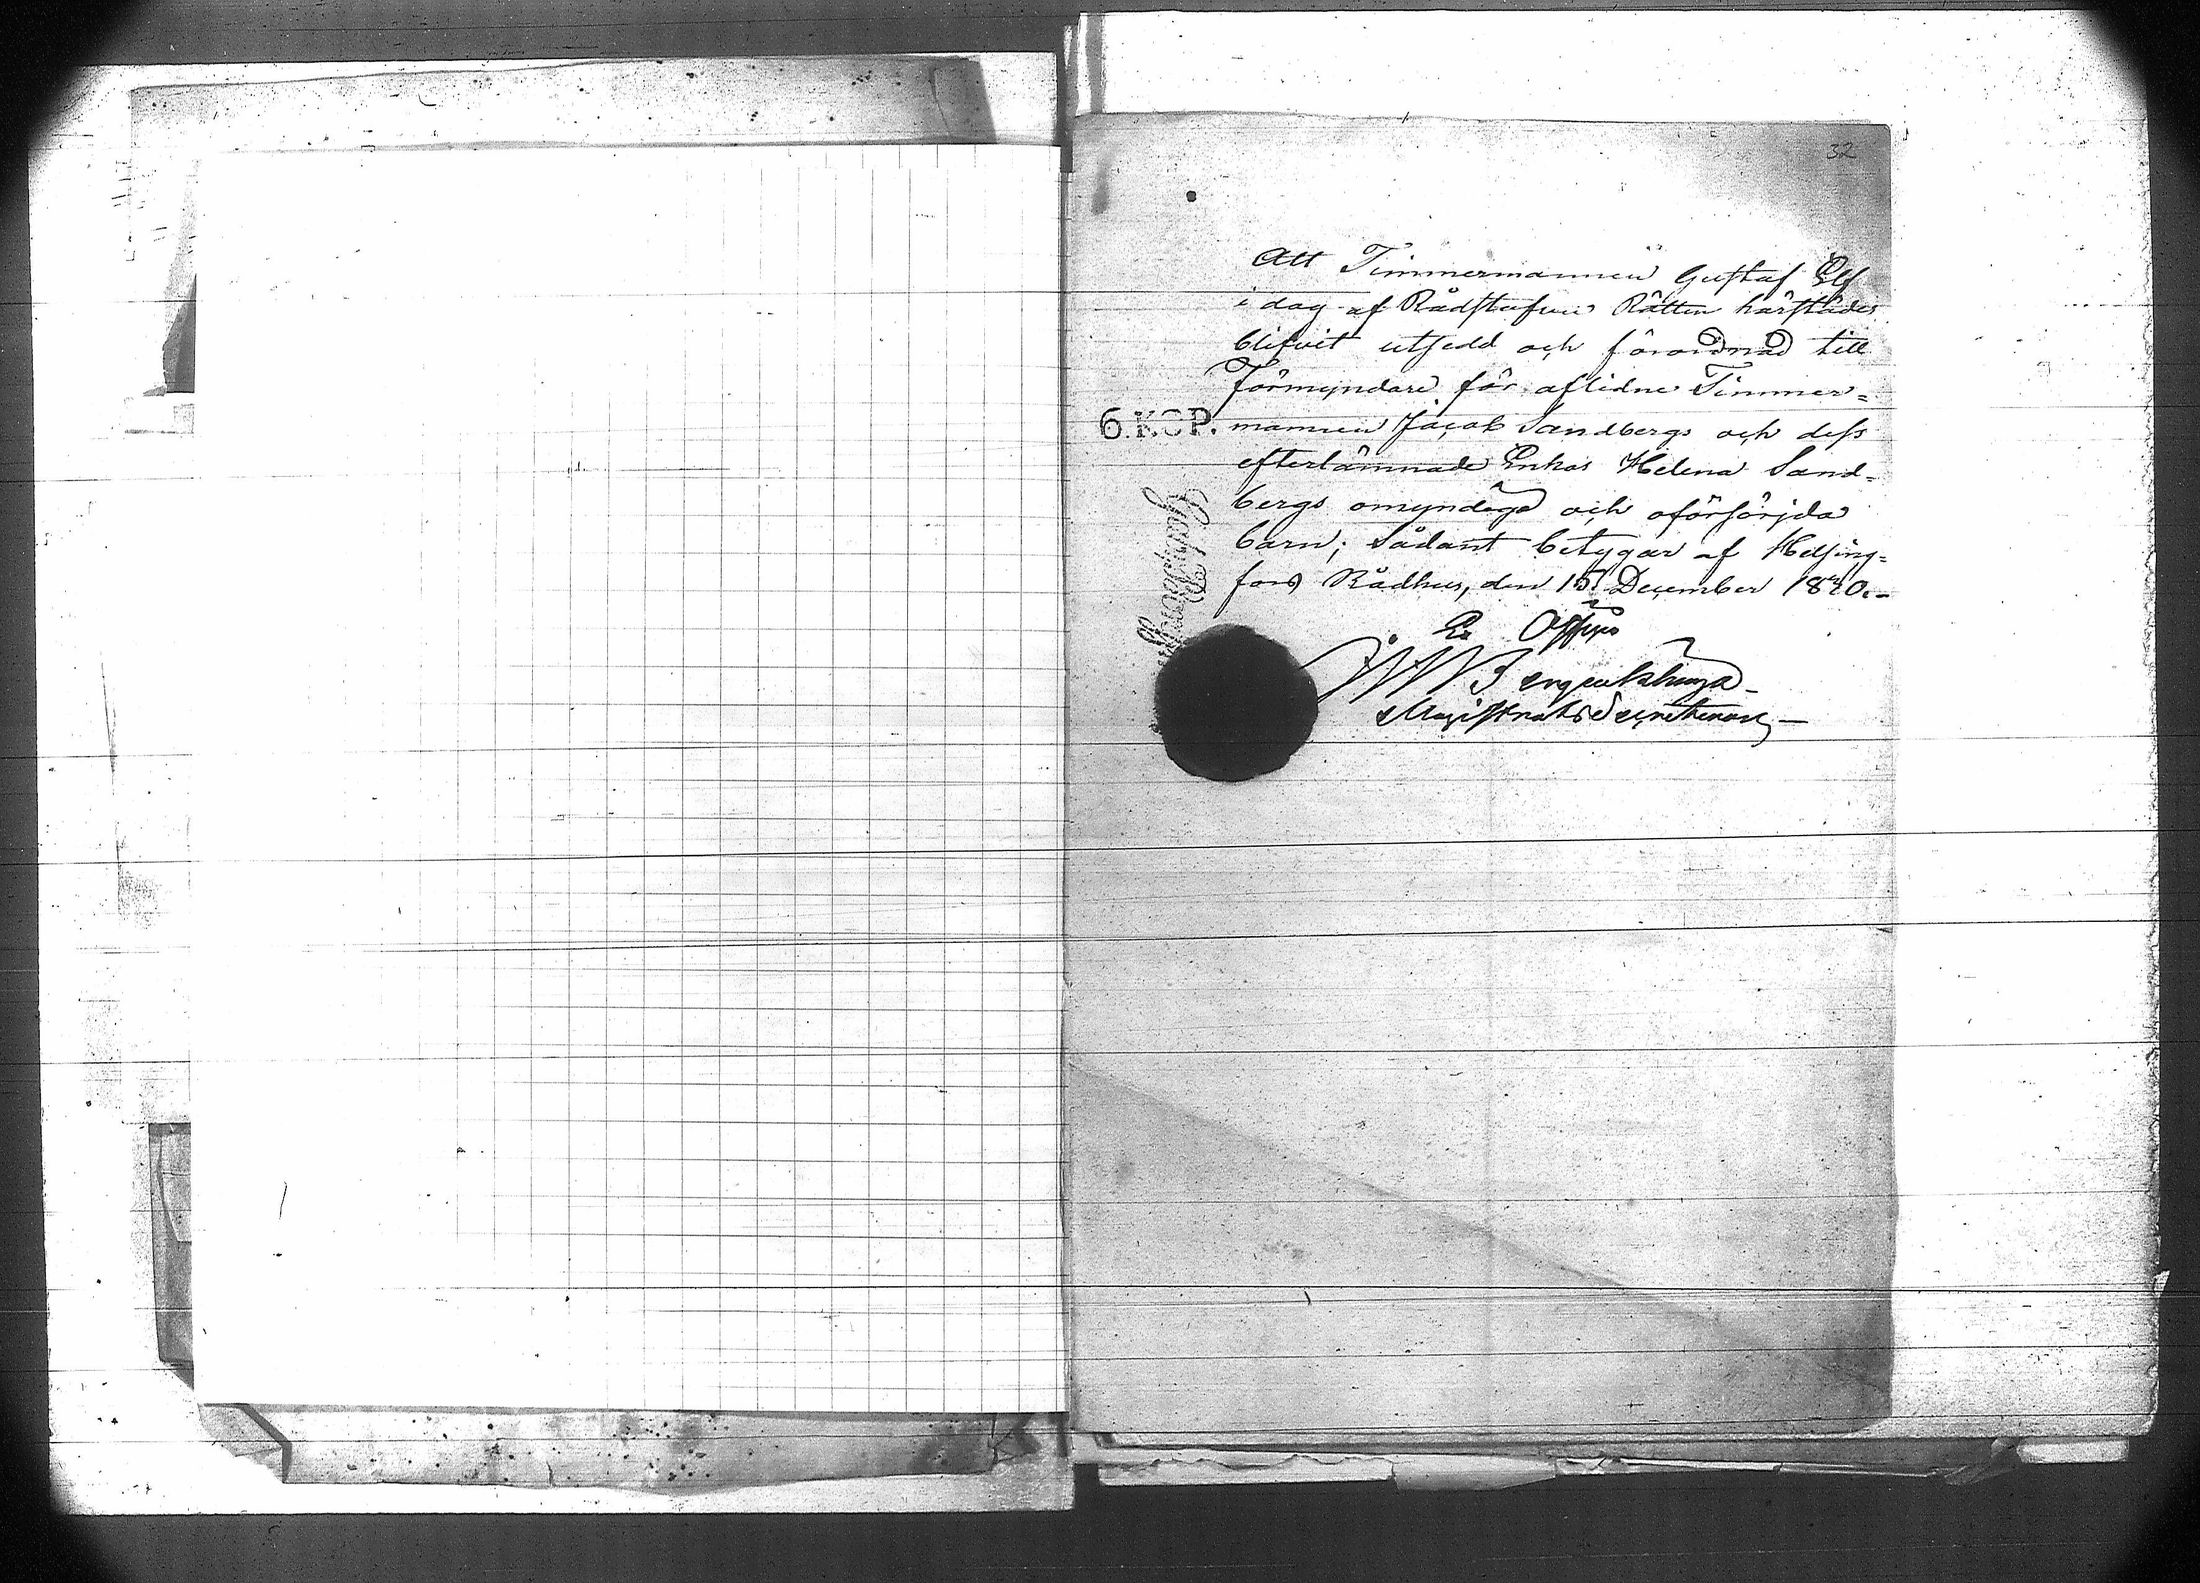 32
Att Timmermannen Gustaf Elf
i dag af Rådstufvu Rätten härstädes
blifvit utsedd och förordnad till
Förmyndare för aflidne Timmer=
mannen Jacob Sandbergs och dess
efterlämnade Enkas Helena Sand=
bergs omyndiga och oförsörjda
barn; Sådant betygar af Helsing=
fors Rådhus, den 15 December 1820.-
6.KOP.
Ex Officio
Magistrats Secreterare